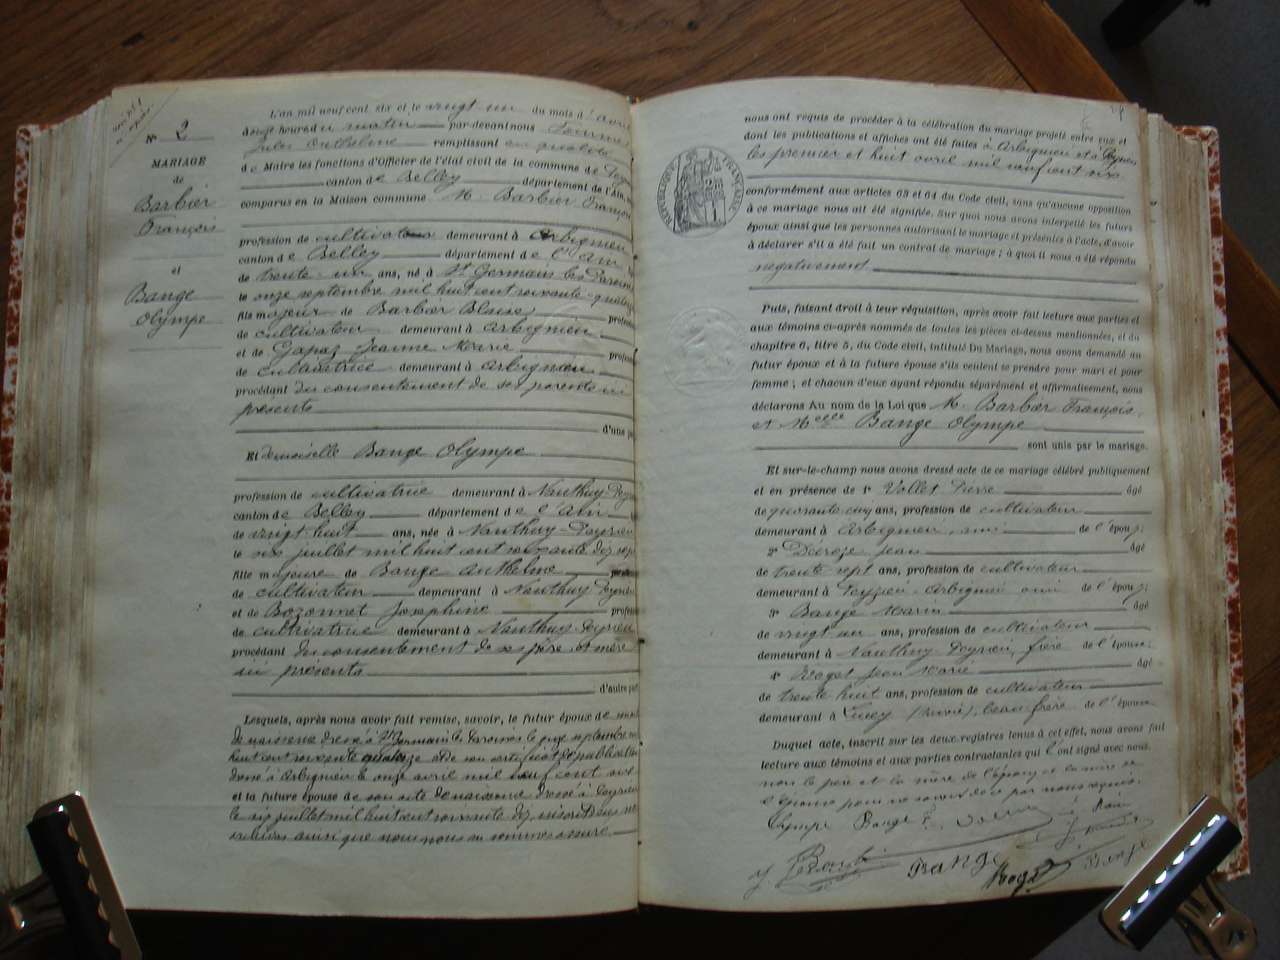 N° 2
MARIAGE
de
Barbier
François
et
Bange
Olympe
L'an mil neuf cent six et le vingt un du mois d'avril
à onze heures du matin par-devant nous
Jules Anthelme remplissant en qualité
de Maire les fonctions d'Officier de l'état civil de la commune de
canton de Belley département de l'Ain,
comparus en la Maison commune M. Barbier François
profession de cultivateur demeurant à Arbignieu
canton de Belley département de l'Ain
de trente-un ans, né à St Germain les Paroisses
le onze septembre mil huit cent soixante-quatorze
fils majeur de Barbier Blaise
de cultivateur demeurant à Arbignieu
et de Gapaz Jeanne Marie
de cultivatrice demeurant à Arbignieu
procédant du consentement de ses parents ici
présents
d'une part
Et demoiselle Bange Olympe
profession de cultivatrice demeurant à Nanthuy-Peyrieu
canton de Belley département de l'Ain
de vingt huit ans, née à Nanthuy-Peyrieu
le six juillet mil huit cent soixante dix sept
fille majeure de Bange Anthelme
de cultivateur demeurant à Nanthuy Peyrieu
et de Bozonnet Joséphine
de cultivatrice demeurant à Nanthuy-Peyrieu
procédant du consentement de ses père et mère
ici présents
d'autre part
Lesquels, après nous avoir fait remise, savoir, le futur époux de son acte
de naissance dressé à St Germain les Paroisses le onze septembre mil
huit cent soixante quatorze et de son certificat de publication
dressé à Arbignieu le onze avril mil neuf cent six
et la future épouse de son acte de naissance dressé à Peyrieu
le six juillet mil huit cent soixante dix sept inscrit dans nos
archives ainsi que nous nous en sommes assuré
nous ont requis de procéder à la célébration du mariage projeté entre eux et
dont les publications et affiches ont été faites à Arbignieu et à Peyrieu
les premier et huit avril mil neuf cent six
RÉPUBLIQUE FRANÇAISE
conformément aux articles 63 et 64 du Code civil, sans qu'aucune opposition
à ce mariage nous ait été signifiée. Sur quoi nous avons interpellé les futurs
époux ainsi que les personnes autorisant le mariage et présentes à l'acte, d'avoir
à déclarer s'il a été fait un contrat de mariage ; à quoi il nous a été répondu
négativement
Puis, faisant droit à leur réquisition, après avoir fait lecture aux parties et
aux témoins ci-après nommés de toutes les pièces ci-dessus mentionnées, et du
chapitre 6, titre 5, du Code civil, intitulé Du Mariage, nous avons demandé au
futur époux et à la future épouse s'ils veulent se prendre pour mari et pour
femme ; et chacun d'eux ayant répondu séparément et affirmativement, nous
déclarons Au nom de la Loi que M. Barbier François
et Melle Bange Olympe
sont unis par le mariage.
Et sur-le-champ nous avons dressé acte de ce mariage célébré publiquement
et en présence de 1° Vollet Pierre âgé
de quarante cinq ans, profession de cultivateur
demeurant à Arbignieu, ami de l'époux;
2° Décroze Jean âgé
de trente sept ans, profession de cultivateur
demeurant à Peyzieu-Arbignieu ami de l'époux;
3° Bange Marin âgé
de vingt un ans, profession de cultivateur
demeurant à Nanthuy Peyrieu, frère de l'épouse;
4° Roget Jean Marie âgé
de trente huit ans, profession de cultivateur
demeurant à Lucey (Savoie), beau frère de l'épouse
Duquel acte, inscrit sur les deux registres tenus à cet effet, nous avons fait
lecture aux témoins et aux parties contractantes qui l'ont signé avec nous,
non le père et la mère de l'époux et la mère de
l'épouse pour ne savoir de ce par nous requis.
Olympe Bange
Bange
Roget
Bange